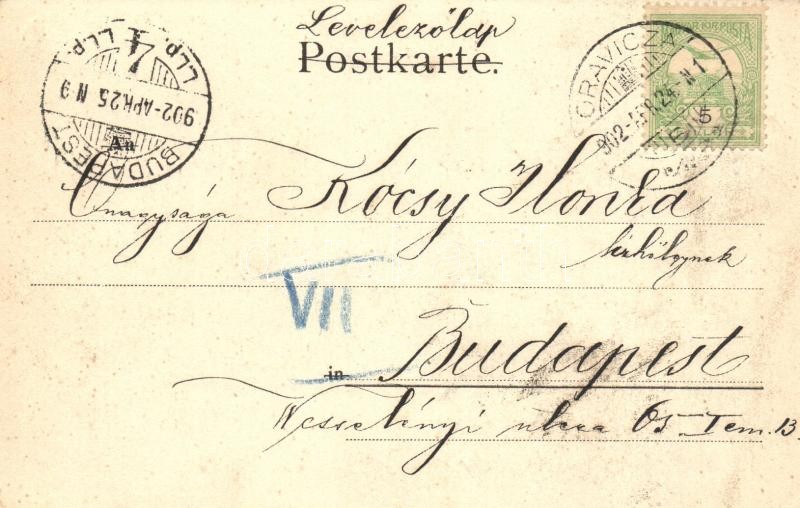 Levelezőlap
Postkarte.
MAGYAR KIR. POSTA
5
ORAVICZA
902 APR 24 N 1
BUDAPEST
902-APR 25 N 9
An
Őnagysága Kócsy Ilonka
úrhölgynek
VII
in Budapest
Wesselényi utcza 65 I em. 13.